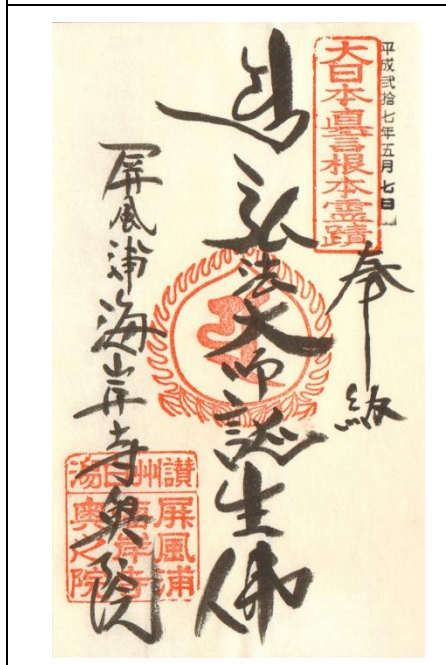 平成弐拾七年五月七日
大日本眞言根本靈蹟
奉納
弘法大師誕生佛
屏風浦海岸寺奥院
讃州
屏風浦
海岸寺
奥之院